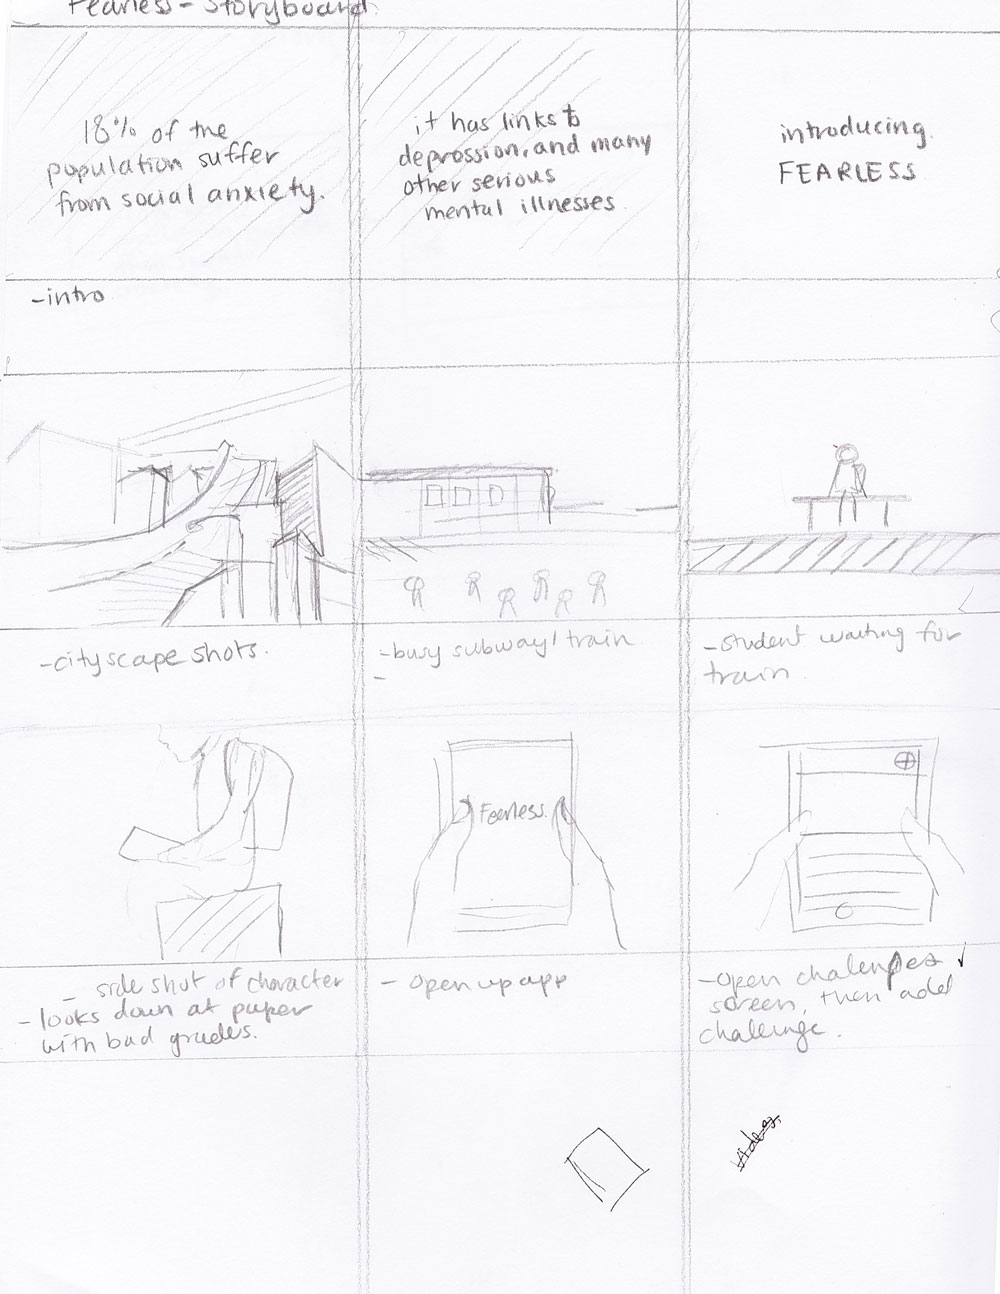 Fearless - Storyboard
18% of the
population suffer
from social anxiety.
it has links to
depression, and many
other serious
mental illnesses
introducing
FEARLESS
-intro
-cityscape shots.
-busy subway/train
-
-student waiting for
train.
Fearless.
- side shot of character
- looks down at paper
with bad grades.
- open up app
-Open challenges
screen, then add
challenge.